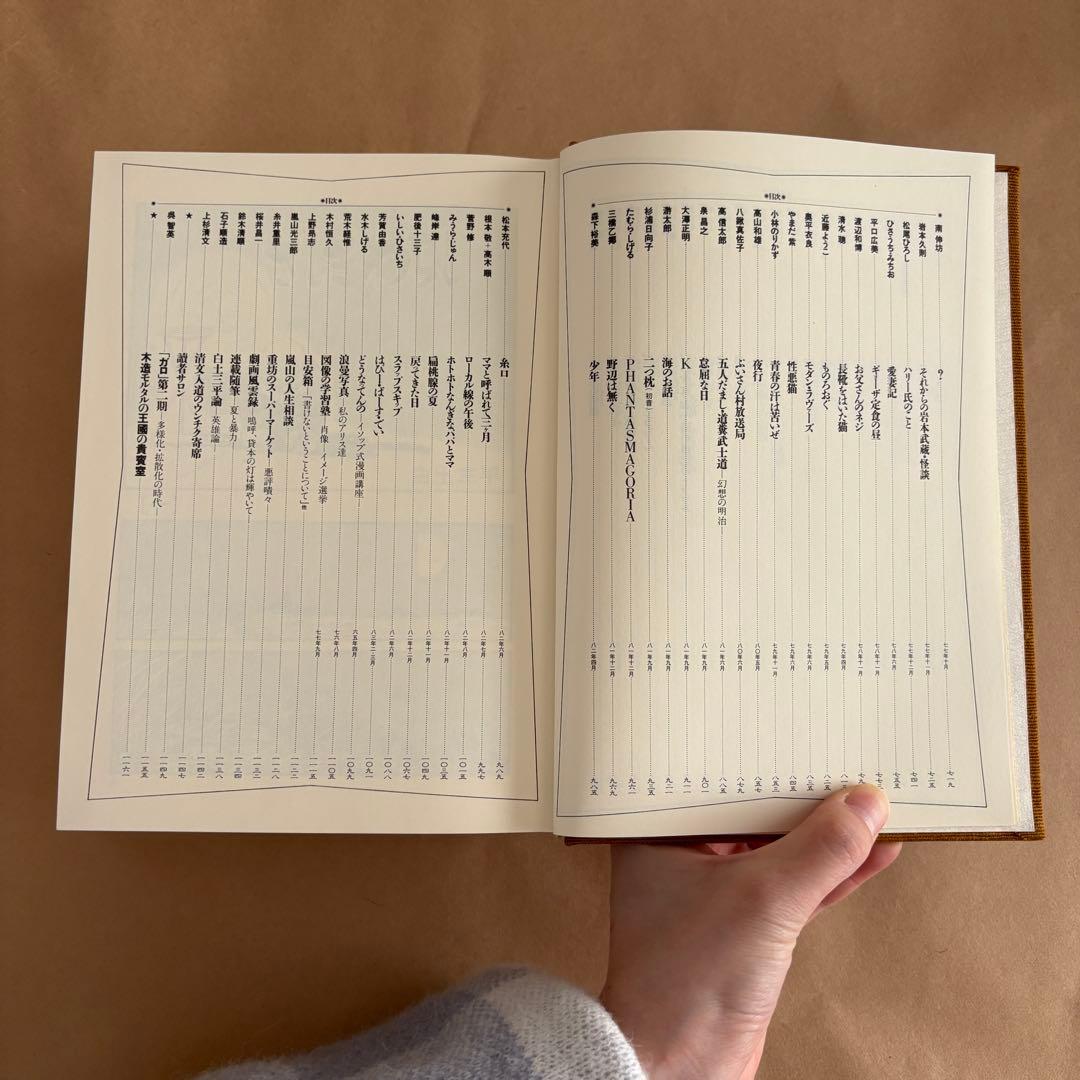 ＊目次＊
南 伸坊 ？ 七七年十月 七一九
岩本久則 それからの岩本武蔵・怪談 七七年十一月 七二五
松尾ひろし ハリー氏のこと 七七年十二月 七四一
ひさうちみちお 愛妻記 七八年六月 七五五
平口広美 ギョーザ定食の昼 七八年十一月
渡辺和博 お父さんのネジ 七八年十一月
清水 聰 長靴をはいた猫 七九年四月
近藤ようこ ものろおぐ 七九年五月 八二五
奥平衣良 モダン・ラヴァーズ 七九年六月 八三五
やまだ 紫 性悪猫 七九年六月 八四五
小林のりかず 青春の汗は苦いぜ 七九年十一月 八五三
高山和雄 夜行 八〇年五月 八五七
八鍬真佐子 ぶいさん村放送局 八〇年六月 八七九
高信太郎 五人だまし道糞武士道―幻想の明治― 八一年六月 八八五
泉 昌之 怠屈な日 八一年九月 九〇一
大澤正明 K 八一年九月 九一一
太郎 海のお話 八一年九月 九二一
杉浦日向子 二つ枕（初音） 八一年九月 九三五
たむらしげる PHANTASMAGORIA 八一年十二月 九六一
三橋乙揶 野辺は無く 八一年十二月 九六九
森下裕美 少年 八二年四月 九八五
＊目次＊
松本充代 糸口 八二年六月 九八九
根本 敬＋高木 順 ママと呼ばれて三ヶ月 八二年七月 九九七
菅野 修 ローカル線の午後 八二年八月 一〇一五
みうらじゅん ホトホトなんぎなパパとママ 八二年十一月 一〇三五
峰岸 達 扁桃腺の夏 八二年十一月 一〇四九
肥後十三子 戻ってきた日 八二年十二月 一〇六七
いしいひさいち スラップスキップ 八二年六月 一〇八八
芳賀由香 はぴーばーすてい 八三年二・三月 一〇九一
水木しげる どうなってんの―イソップ式漫画講座― 六五年四月 一〇九九
荒木経惟 浪曼写真―私のアリス達― 七六年八月 一一〇五
木村恒久 図像の学習塾―肖像・イメージ選挙 七七年九月
上野昂志 目安箱―「書けないということについて」他 一一一五
嵐山光三郎 嵐山の人生相談 一一二二
糸井重里 重坊のスーパーマーケット―悪評嘖々― 一一二八
桜井昌一 劇画風雲録―嗚呼、貸本の灯は輝やいて― 一一三二
鈴木清順 連載随筆―夏と暴力― 一一三四
石子順造 白土三平論―英雄論― 一一三八
上杉清文 清文入道のウンチク寄席 一一四二
★ 讀者サロン 一一四七
呉 智英 「ガロ」第二期―多様化・拡散化の時代― 一一四九
★ 木造モルタルの王國の貴賓室 一一五五
一一六一